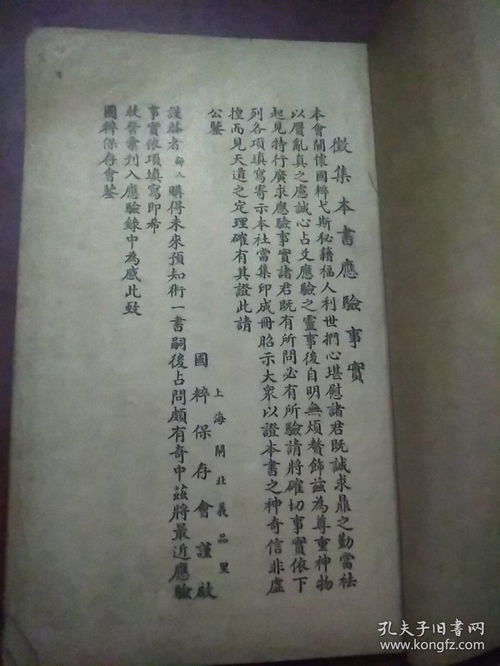 徵集本書應驗事實
本會關懷國粹弋斯秘籍福人利世捫心堪慰諸君既誠求鼎之勤當祛
以贗亂真之慮誠心占爻應驗之靈事後自明無煩贅飾茲為尊重神物
起見特行廣求應驗事實諸君既有所問必有所驗請將確切事實依下
列各項填寫寄示本社當集印成冊昭示大衆以證本書之神奇信非虛
搅而見天道之定理確有其證此請
公鑒
上海閘北義品里
國粹保存會謹啟
謹啟者鄙人購得未來預知術一書嗣後占問頗有奇中茲將最近應驗
事實依項填寫即希
敝會彙列入應驗錄中為感此致
國粹保存會鑒
孔夫子旧书网
www.kongfz.com